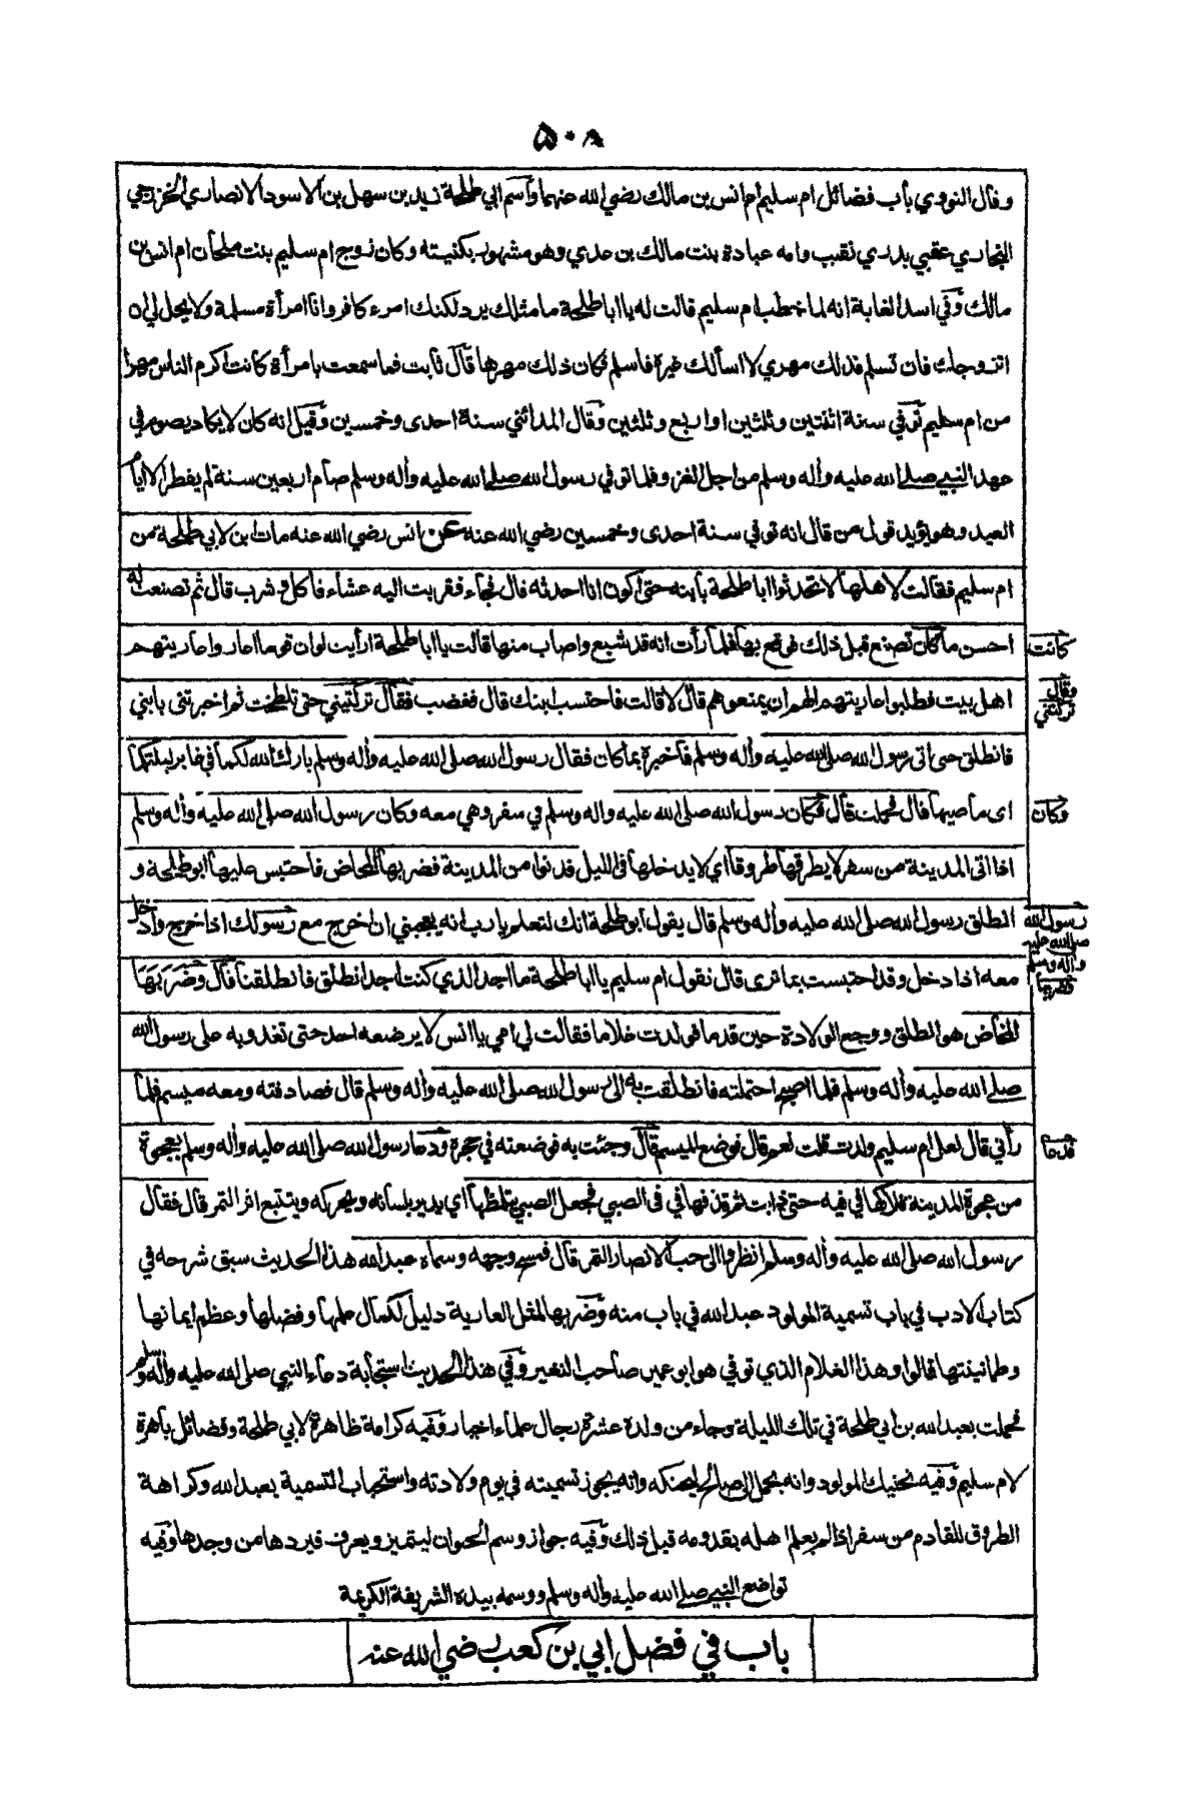 ٥٠٨
وقال النووي باب فضائل ام سليم ام انس بن مالك رضي الله عنهما واسم ابي طلحة زيد بن سهل بن الاسود الانصاري الخزرجي
النجاري عقبي بدري نقيب وامه عبادة بنت مالك بن عدي وهو مشهور بكنيته وكان زوج ام سليم بنت ملحان ام انس بن
مالك وفي اسد الغابة انه لما خطب ام سليم قالت له يا ابا طلحة ما مثلك يرد لكنك امرء كافر وانا امرأة مسلمة ولا يحل لي ان
اتزوجك فان تسلم فذلك مهري لا اسألك غيره فاسلم فكان ذلك مهرها قال ثابت فما سمعت بامرأة كانت اكرم الناس مهرا
من ام سليم توفي سنة اثنتين وثلثين او اربع وثلثين وقال المدائني سنة احدى وخمسين وقيل انه كان لا يكاد يصوم في
عهد النبي صلى الله عليه واله وسلم من اجل الغزو فلما توفي رسول الله صلى الله عليه واله وسلم صام اربعين سنة لم يفطر الا ايام
العيد وهو يؤيد قول من قال انه توفي سنة احدى وخمسين رضي الله عنه عن انس رضي الله عنه مات ابن لابي طلحة من
ام سليم فقالت لاهلها لا تحدثوا ابا طلحة بابنه حتى اكون انا احدثه قال فجاء فقربت اليه عشاء فاكل وشرب قال ثم تصنعت له
احسن ما كان تصنع قبل ذلك فوقع بها فلما رأت انه قد شبع واصاب منها قالت يا ابا طلحة ارأيت لو ان قوما اعاروا عاريتهم
كانت
اهل بيت فطلبوا عاريتهم الهم ان يمنعوهم قال لا قالت فاحتسب ابنك قال فغضب فقال تركتيني حتى تلطخت ثم اخبرتني بابني
وقال تركتني
فانطلق حتى اتى رسول الله صلى الله عليه واله وسلم فاخبره بما كان فقال رسول الله صلى الله عليه واله وسلم بارك الله لكما في غابر ليلتكما
اى ماضيها قال فحملت قال فكان رسول الله صلى الله عليه واله وسلم في سفر وهي معه وكان رسول الله صلى الله عليه واله وسلم
وكان
اذا اتى المدينة من سفر لا يطرقها طروقا أي لا يدخلها في الليل فدنوا من المدينة فضربها المخاض فاحتبس عليها ابو طلحة و
انطلق رسول الله صلى الله عليه واله وسلم قال يقول ابو طلحة انك لتعلم يا رب انه يعجبني ان اخرج مع رسولك اذا خرج وادخل
رسول الله صلى الله عليه واله وسلم فضربها
معه اذا دخل وقد احتبست بما ترى قال تقول ام سليم يا ابا طلحة ما اجد الذي كنت اجد انطلق فانطلقنا قال وضربها
المخاض هو الطلق ووجع الولادة حين قدما فولدت غلاما فقالت لي امي يا انس لا يرضعه احد حتى تغدو به على رسول الله
صلى الله عليه واله وسلم فلما اصبح احتملته فانطلقت به الى رسول الله صلى الله عليه واله وسلم قال فصادفته ومعه ميسم فلما
رأني قال لعل ام سليم ولدت قلت نعم قال فوضع الميسم قال وجئت به فوضعته في حجره ودعا رسول الله صلى الله عليه واله وسلم بعجوة
فدعا
من عجوة المدينة فلاكها في فيه حتى ذابت ثم قذفها في فى الصبي فجعل الصبي يتلمظها أي يدير بلسانه ويحركه ويتتبع اثر التمر قال فقال
رسول الله صلى الله عليه واله وسلم انظروا الى حب الانصار التمر قال فمسح وجهه وسماه عبد الله هذا الحديث سبق شرحه في
كتاب الادب في باب تسمية المولود عبد الله في باب منه وضربها لمثل العارية دليل لكمال علمها وفضلها وعظم ايمانها
وطمانينتها قالوا وهذا الغلام الذي توفي هو ابو عمير صاحب النغير وفي هذا الحديث استجابة دعاء النبي صلى الله عليه واله وسلم
فحملت بعبد الله بن ابي طلحة في تلك الليلة وجاء من ولده عشرة رجال علماء اخيار وفيه كرامة ظاهرة لابي طلحة وفضائل باهرة
لام سليم وفيه تحنيك المولود وانه يحمل الى صالح ليحنكه وانه يجوز تسميته في يوم ولادته واستحباب التسمية بعبد الله وكراهة
الطروق للقادم من سفر اذا لم يعلم اهله بقدومه قبل ذلك وفيه جواز وسم الحيوان ليتميز ويعرف فيردها من وجدها وفيه
تواضع النبي صلى الله عليه واله وسلم ووسمه بيده الشريفة الكريمة
باب في فضل ابي بن كعب رضي الله عنه